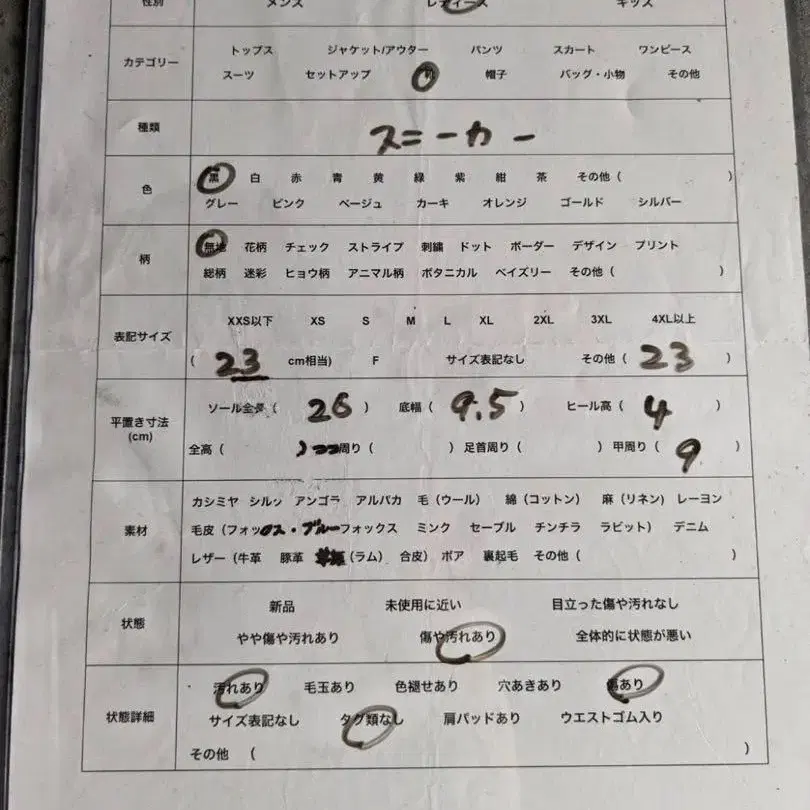 性別 メンズ レディース キッズ
カテゴリー
トップス ジャケット/アウター パンツ スカート ワンピース
スーツ セットアップ 靴 帽子 バッグ・小物 その他
種類 スニーカー
色
黒 白 赤 青 黄 緑 紫 紺 茶 その他 ( )
グレー ピンク ベージュ カーキ オレンジ ゴールド シルバー
柄
無地 花柄 チェック ストライプ 刺繍 ドット ボーダー デザイン プリント
総柄 迷彩 ヒョウ柄 アニマル柄 ボタニカル ペイズリー その他 ( )
表記サイズ
XXS以下 XS S M L XL 2XL 3XL 4XL以上
( 23 cm相当) F サイズ表記なし その他 ( 23 )
平置き寸法
(cm)
ソール全長 ( 26 ) 底幅 ( 9.5 ) ヒール高 ( 4 )
全高 ( ) 周り ( ) 足首周り ( ) 甲周り ( 9 )
素材
カシミヤ シルク アンゴラ アルパカ 毛 (ウール) 綿 (コットン) 麻 (リネン) レーヨン
毛皮 (フォックス・ブルーフォックス ミンク セーブル チンチラ ラビット) デニム
レザー (牛革 豚革 (ラム) 合皮) ボア 裏起毛 その他 ( )
状態
新品 未使用に近い 目立った傷や汚れなし
やや傷や汚れあり 傷や汚れあり 全体的に状態が悪い
状態詳細
汚れあり 毛玉あり 色褪せあり 穴あきあり 傷あり
サイズ表記なし タグ類なし 肩パッドあり ウエストゴム入り
その他 ( )